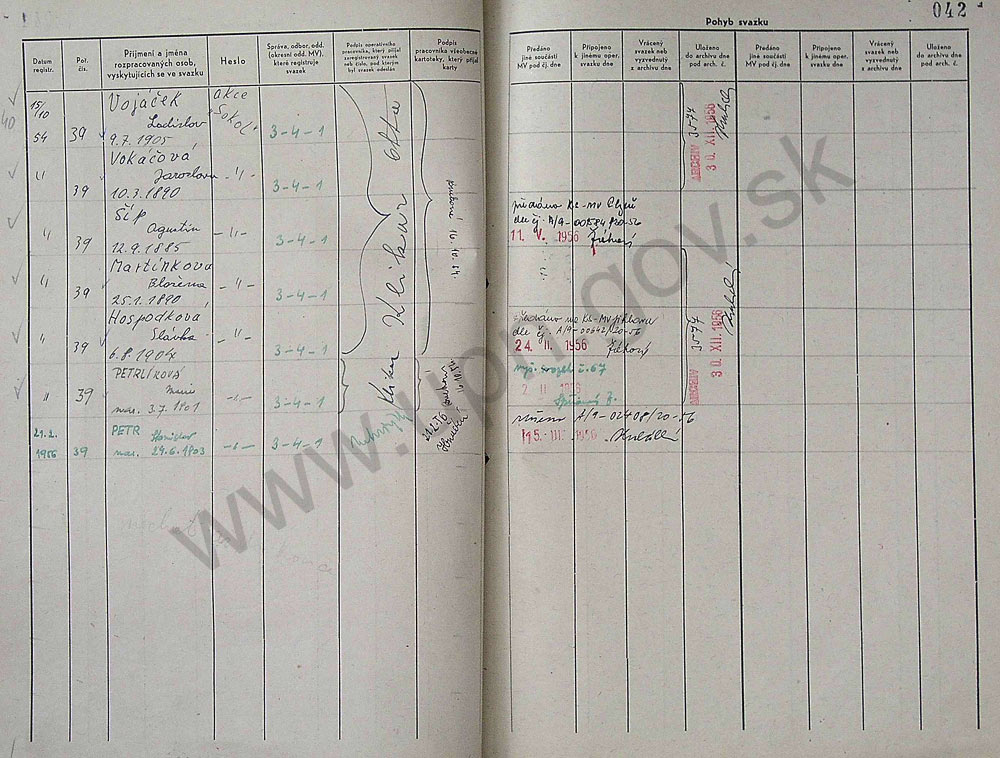 042
Pohyb svazku
Datum registr.
Poř. čís.
Příjmení a jména rozpracovaných osob, vyskytujících se ve svazku
Heslo
Správa, odbor, odd. (okresní odd. MV), které registruje svazek
Podpis operativního pracovníka, který přijal zaregistrovaný svazek neb číslo, pod kterým byl svazek odeslán
Podpis pracovníka všeobecné kartoteky, který přijal karty
Předáno jiné součásti MV pod čj. dne
Připojeno k jinému oper. svazku dne
Vrácený svazek neb vyzvednutý z archivu dne
Uloženo do archivu dne pod arch. č.
Předáno jiné součásti MV pod čj. dne
Připojeno k jinému oper. svazku dne
Vrácený svazek neb vyzvednutý z archivu dne
Uloženo do archivu dne pod arch. č.
40
15/10
54
39
Vojáček
Ladislav
9.7.1905
akce
Sokol
3-4-1
"
39
Vokáčová
Jaroslava
10.3.1890
-"-
3-4-1
"
39
Šíp
Agustin
12.9.1885
-"-
3-4-1
"
39
Martínkova
Blažena
25.1.1890
-"-
3-4-1
"
39
Hospodkova
Slávka
6.8.1904
-"-
3-4-1
"
39
PETRLÍKOVÁ
Marie
nar. 3.7.1901
-"-
3-4-1
21.2.
1956
39
PETR
Stanislav
nar. 29.6.1903
-"-
3-4-1
16.10.54.
21.2.56
předáno KS-MV
dle čj. A/9-00584/20-56
11. V. 1956
předáno na KS-MV
dle čj. A/9-00642/20-56
24. II. 1956
svaz. č. 67
2 II 1956
A/9-02408/20-56
15. III. 1956
ARCHIV 3574
30. XII. 1956
ARCHIV 3577
30. XII. 1956
www.upn.gov.sk